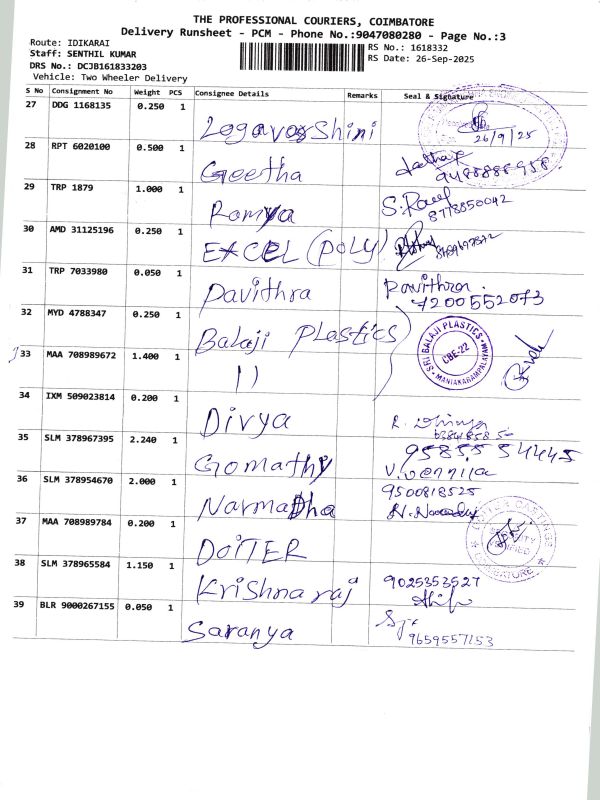 THE PROFESSIONAL COURIERS, COIMBATORE
Delivery Runsheet - PCM - Phone No.:9047080280 - Page No.:3
Route: IDIKARAI
RS No.: 1618332
Staff: SENTHIL KUMAR
RS Date: 26-Sep-2025
DRS No.: DCJB161833203
Vehicle: Two Wheeler Delivery
S No Consignment No Weight PCS Consignee Details Remarks Seal & Signature
27 DDG 1168135 0.250 1
Logavarshini 26/9/25
28 RPT 6020100 0.500 1
Geetha
29 TRP 1879 1.000 1
Ramya 8778850042
30 AMD 31125196 0.250 1
EXCEL (POLY)
31 TRP 7033980 0.050 1
Pavithra Pavithra
7200552073
32 MYD 4788347 0.250 1
Balaji Plastics SRI BALAJI PLASTICS CBE-22 MANIAKARAMPALAYAM
33 MAA 708989672 1.400 1
11
34 IXM 509023814 0.200 1
Divya
35 SLM 378967395 2.240 1
Gomathy 95855 54445
V. Vennila
36 SLM 378954670 2.000 1
Narmadha 9500818525
37 MAA 708989784 0.200 1
DOTTER
38 SLM 378965584 1.150 1
Krishna raj 9025353527
39 BLR 9000267155 0.050 1
Saranya 9659557153